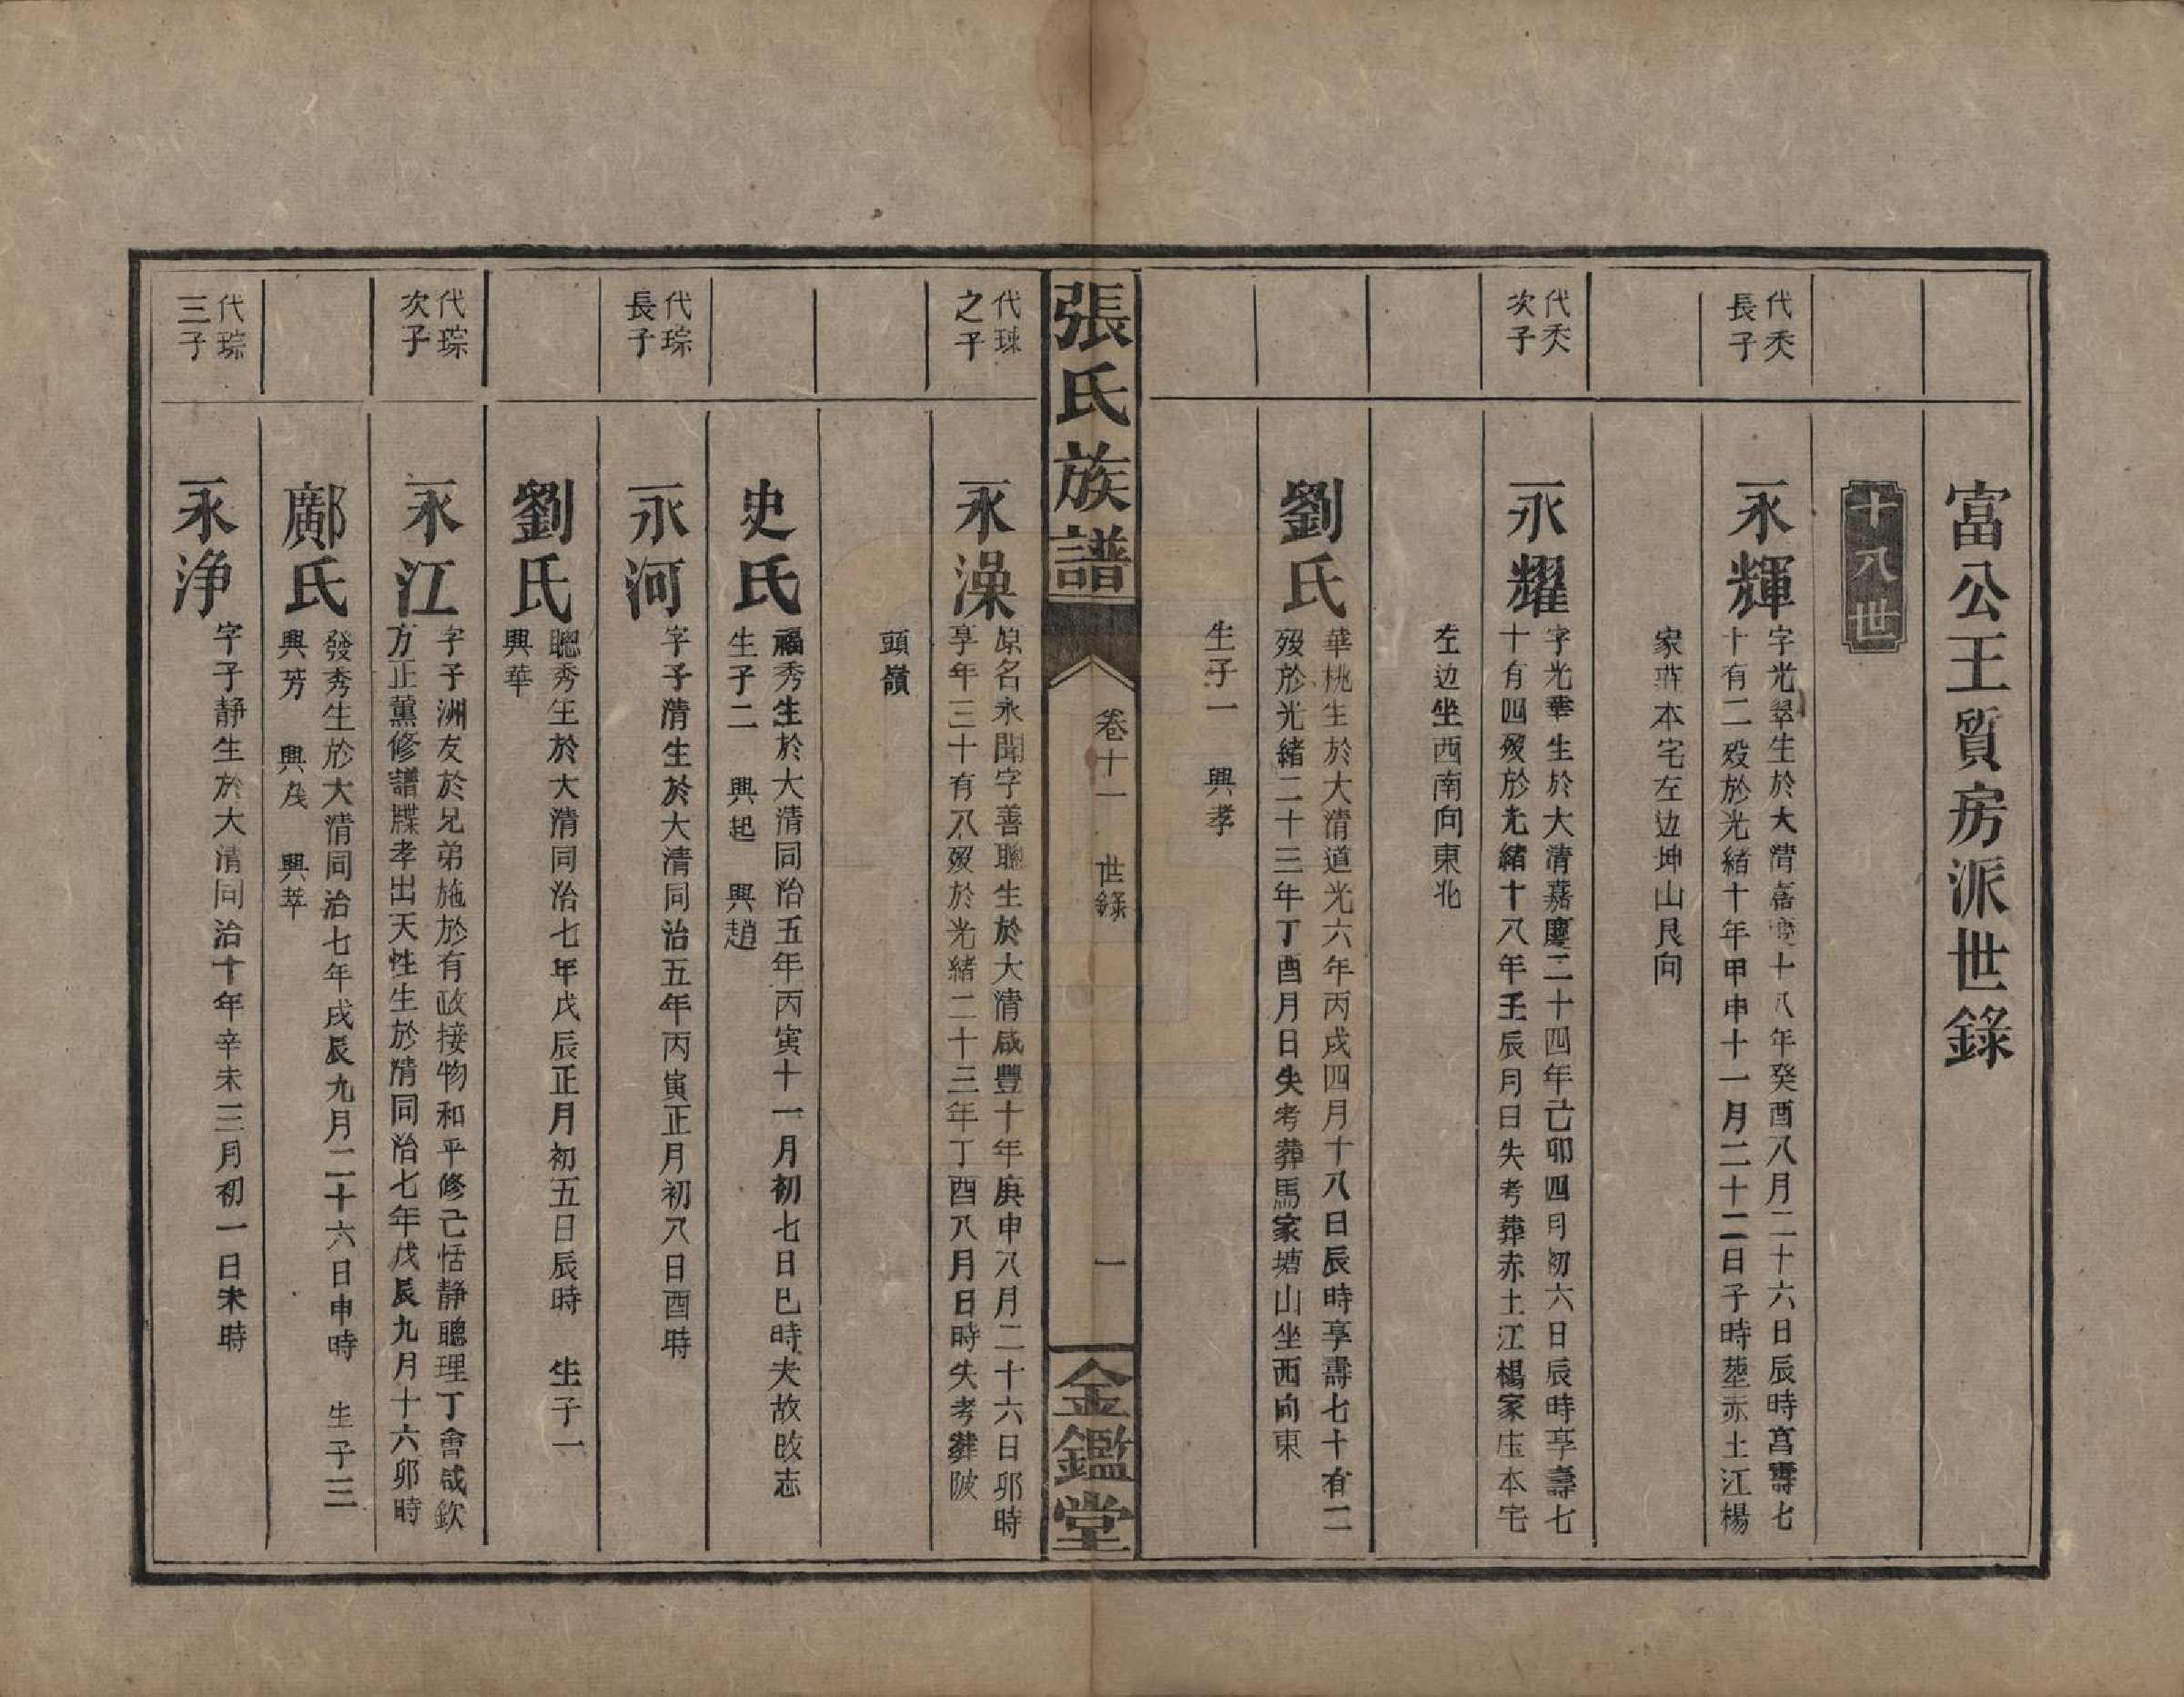 富公王質房派世錄
十八世
代秂
長子
永輝
字光翠生於大清嘉慶十八年癸酉八月二十六日辰時享壽七
十有二殁於光緒十年甲申十一月二十二日子時塟赤土江楊
家莊本宅左边坤山艮向
代秂
次子
永耀
字光華生於大清嘉慶二十四年己卯四月初六日辰時享壽七
十有四殁於光緒十八年壬辰月日失考葬赤土江楊家庄本宅
左边坐西南向東北
劉氏
華桃生於大清道光六年丙戌四月十八日辰時享壽七十有二
殁於光緒二十三年丁酉月日失考葬馬家塘山坐西向東
生子一　興孝
張氏族譜
卷十一　世錄
一
金鑑堂
代琜
之子
永澡
原名永聞字善聰生於大清咸豐十年庚申八月二十六日卯時
享年三十有八殁於光緒二十三年丁酉八月日時失考葬陂
頭嶺
史氏
福秀生於大清同治五年丙寅十一月初七日巳時夫故改志
生子二　興起　興趙
代琮
長子
永河
字子清生於大清同治五年丙寅正月初八日酉時
劉氏
聰秀生於大清同治七年戊辰正月初五日辰時　生子一
興華
代琮
次子
永江
字子洲友於兄弟施於有政接物和平修己恬静聰理丁會咸欽
方正薰修譜牒孝出天性生於清同治七年戊辰九月十六卯時
鄺氏
發秀生於大清同治七年戌辰九月二十六日申時　生子三
興芳　興茂　興萃
代琮
三子
永浄
字子静生於大清同治十年辛未三月初一日未時